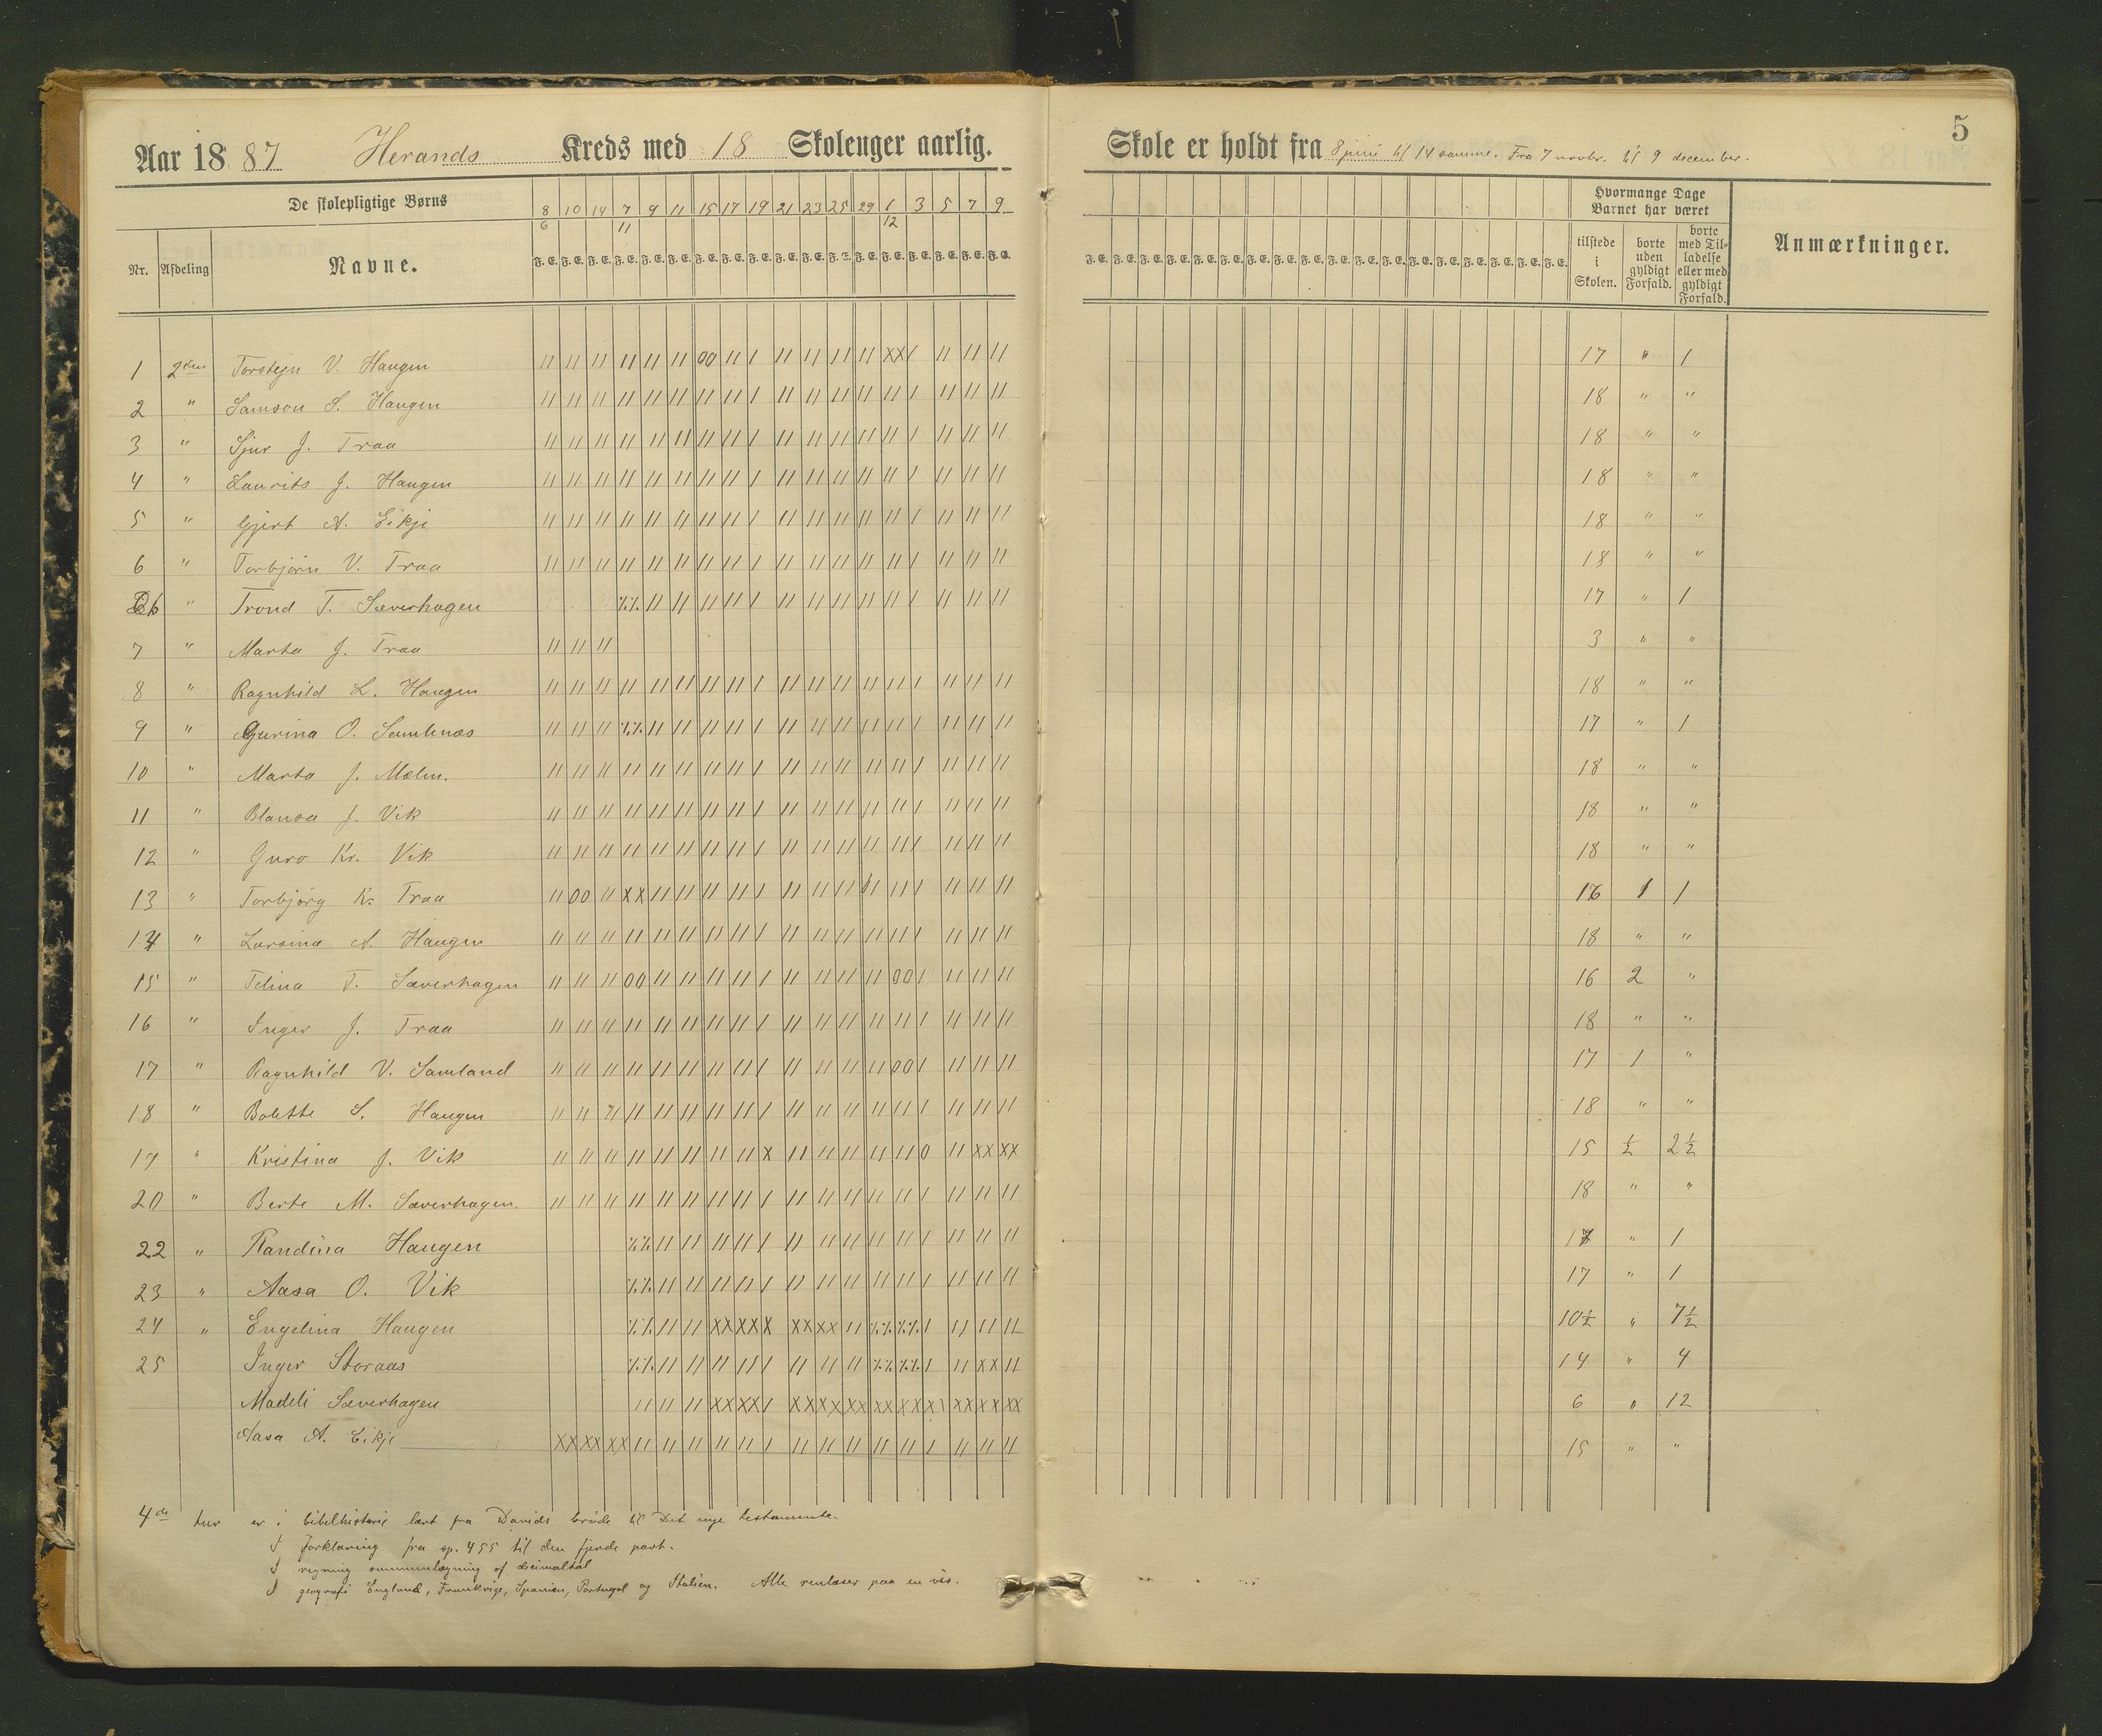 5
Aar 1887 Herands Kreds med 18 Skoleuger aarlig.
Skole er holdt fra 8 juni til 14 samme. Fra 7 novbr. til 9 december.
De skolepligtige Børns
8 10 14 7 9 11 15 17 19 21 23 25 29 1 3 5 7 9
6 11 12
Nr. Afdeling Navne.
F. E. F. E. F. E. F. E. F. E. F. E. F. E. F. E. F. E. F. E. F. E. F. E. F. E. F. E. F. E. F. E. F. E. F. E.
Hvormange Dage Barnet har været
tilstede i Skolen.
borte uden gyldigt Forfald.
borte med Tilladelse eller med gyldigt Forfald.
Anmærkninger.
1 2den Torstejn V. Haugen 11 11 11 11 11 11 00 11 1 11 11 11 11 XX 1 11 11 11 17 " 1
2 " Samson S. Haugen 11 11 11 11 11 11 11 11 1 11 11 11 11 11 1 11 11 11 18 " "
3 " Sjur J. Traa 11 11 11 11 11 11 11 11 1 11 11 11 11 11 1 11 11 11 18 " "
4 " Laurits J. Haugen 11 11 11 11 11 11 11 11 1 11 11 11 11 11 1 11 11 11 18 " "
5 " Gjert A. Eikje 11 11 11 11 11 11 11 11 1 11 11 11 11 11 1 11 11 11 18 " "
6 " Torbjörn V. Traa 11 11 11 11 11 11 11 11 1 11 11 11 11 11 1 11 11 11 18 " "
" Trond T. Sæverhagen 11 11 11 11 1 11 11 11 11 11 1 11 11 11 17 " 1
7 " Marta J. Traa 11 11 11 3 " "
8 " Ragnhild L. Haugen 11 11 11 11 11 11 11 11 1 11 11 11 11 11 1 11 11 11 18 " "
9 " Gurina O. Samlenæs 11 11 11 11 11 11 11 1 11 11 11 11 11 1 11 11 11 17 " 1
10 " Marta J. Mælen. 11 11 11 11 11 11 11 11 1 11 11 11 11 11 1 11 11 11 18 " "
11 " Blansa J. Vik 11 11 11 11 11 11 11 11 1 11 11 11 11 11 1 11 11 11 18 " "
12 " Guro Kr. Vik 11 11 11 11 11 11 11 11 1 11 11 11 11 11 1 11 11 11 18 " "
13 " Torbjörg K. Traa 11 00 11 XX 11 11 11 11 1 11 11 11 11 11 1 11 11 11 16 1 1
14 " Larsina A. Haugen 11 11 11 11 11 11 11 11 1 11 11 11 11 11 1 11 11 11 18 " "
15 " Telina T. Sæverhagen 11 11 11 00 11 11 11 11 1 11 11 11 11 00 1 11 11 11 16 2 "
16 " Inger J. Traa 11 11 11 11 11 11 11 11 1 11 11 11 11 11 1 11 11 11 18 " "
17 " Ragnhild V. Samland 11 11 11 11 11 11 11 11 1 11 11 11 11 00 1 11 11 11 17 1 "
18 " Bolette S. Haugen 11 11 11 11 11 11 11 11 1 11 11 11 11 11 1 11 11 11 18 " "
19 " Kristina J. Vik 11 11 11 11 11 11 11 11 X 11 11 11 11 11 0 11 XX XX 15 ½ 2½
20 " Berte M. Sæverhagen. 11 11 11 11 11 11 11 11 1 11 11 11 11 11 1 11 11 11 18 " "
22 " Randina Haugen 11 11 11 11 1 11 11 11 11 11 1 11 11 11 17 " 1
23 " Aasa O. Vik 11 11 11 11 1 11 11 11 11 11 1 11 11 11 17 " 1
24 " Engelina Haugen 11 11 XX XX X XX XX 11 1 11 11 11 10½ " 7½
25 Inger Storaas 11 11 11 11 1 11 11 11 1 11 XX 11 14 " 4
Madeli Sæverhagen 11 11 11 XX XX 1 XX XX XX XX XX X1 XX XX XX 6 " 12
Aasa A. Eikje XX XX XX 11 11 11 11 11 1 11 11 11 11 11 1 11 11 11 15 " "
4de tur er i bibelhistorie lært fra Davids bröde til Det nye testamente.
I forklaring fra sp. 455 til den fjerde part.
I regning sammenlægning af decimaltal
I geografi England, Frankrige, Spanien, Portugal og Italien. Alle renlæser paa en vis.